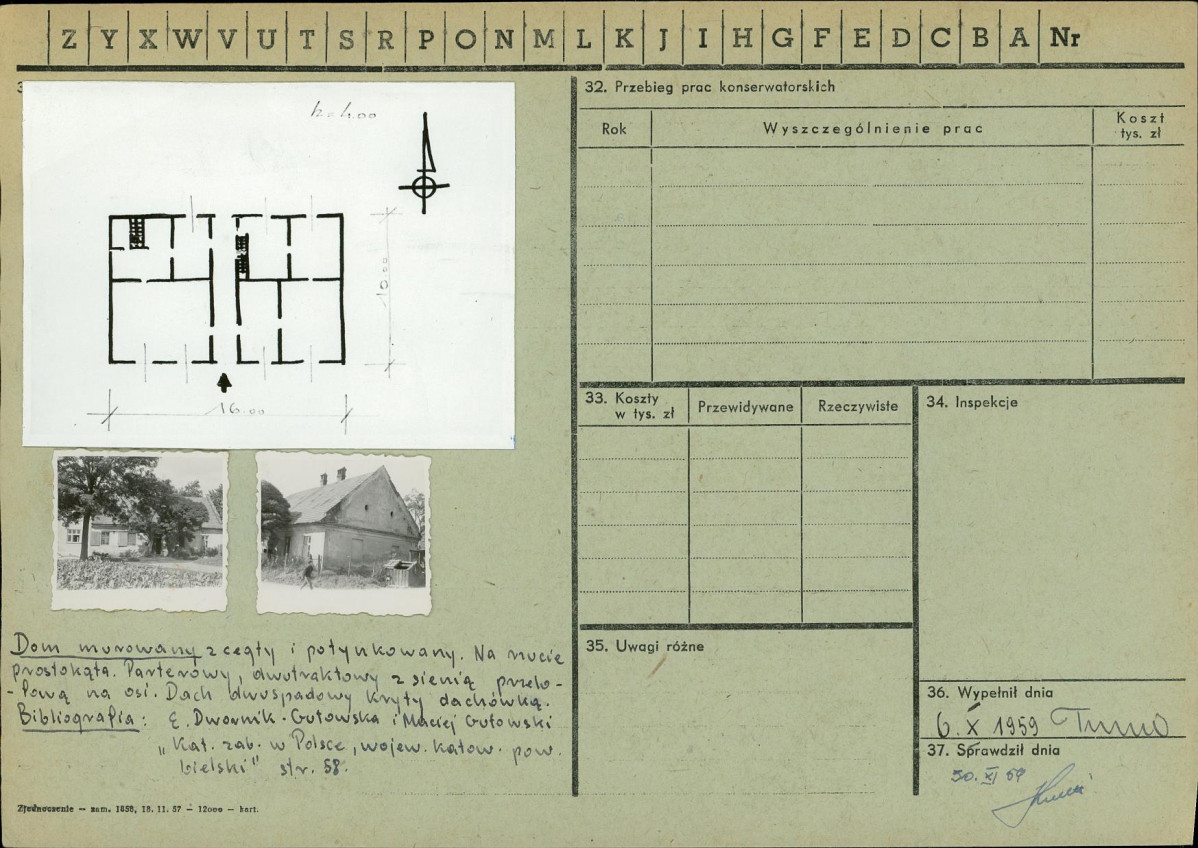 Z Y X W V U T S R P O N M L K J I H G F E D C B A Nr
10.00
16.00
Dom murowany z cegły i potynkowany. Na rzucie
prostokąta. Parterowy, dwutraktowy z sienią przelo-
-tową na osi. Dach dwuspadowy kryty dachówką.
Bibliografia: E. Dwornik-Gutowska i Maciej Gutowski
"Kat. zab. w Polsce, wojew. katow. pow.
bielski" str. 58.
Zjednoczenie — zam. 1858, 18. 11. 57 — 12000 — kart.
32. Przebieg prac konserwatorskich
Rok
Wyszczególnienie prac
Koszt
tys. zł
33. Koszty
w tys. zł
Przewidywane
Rzeczywiste
34. Inspekcje
35. Uwagi różne
36. Wypełnił dnia
6. X 1959
37. Sprawdził dnia
30. XI 59